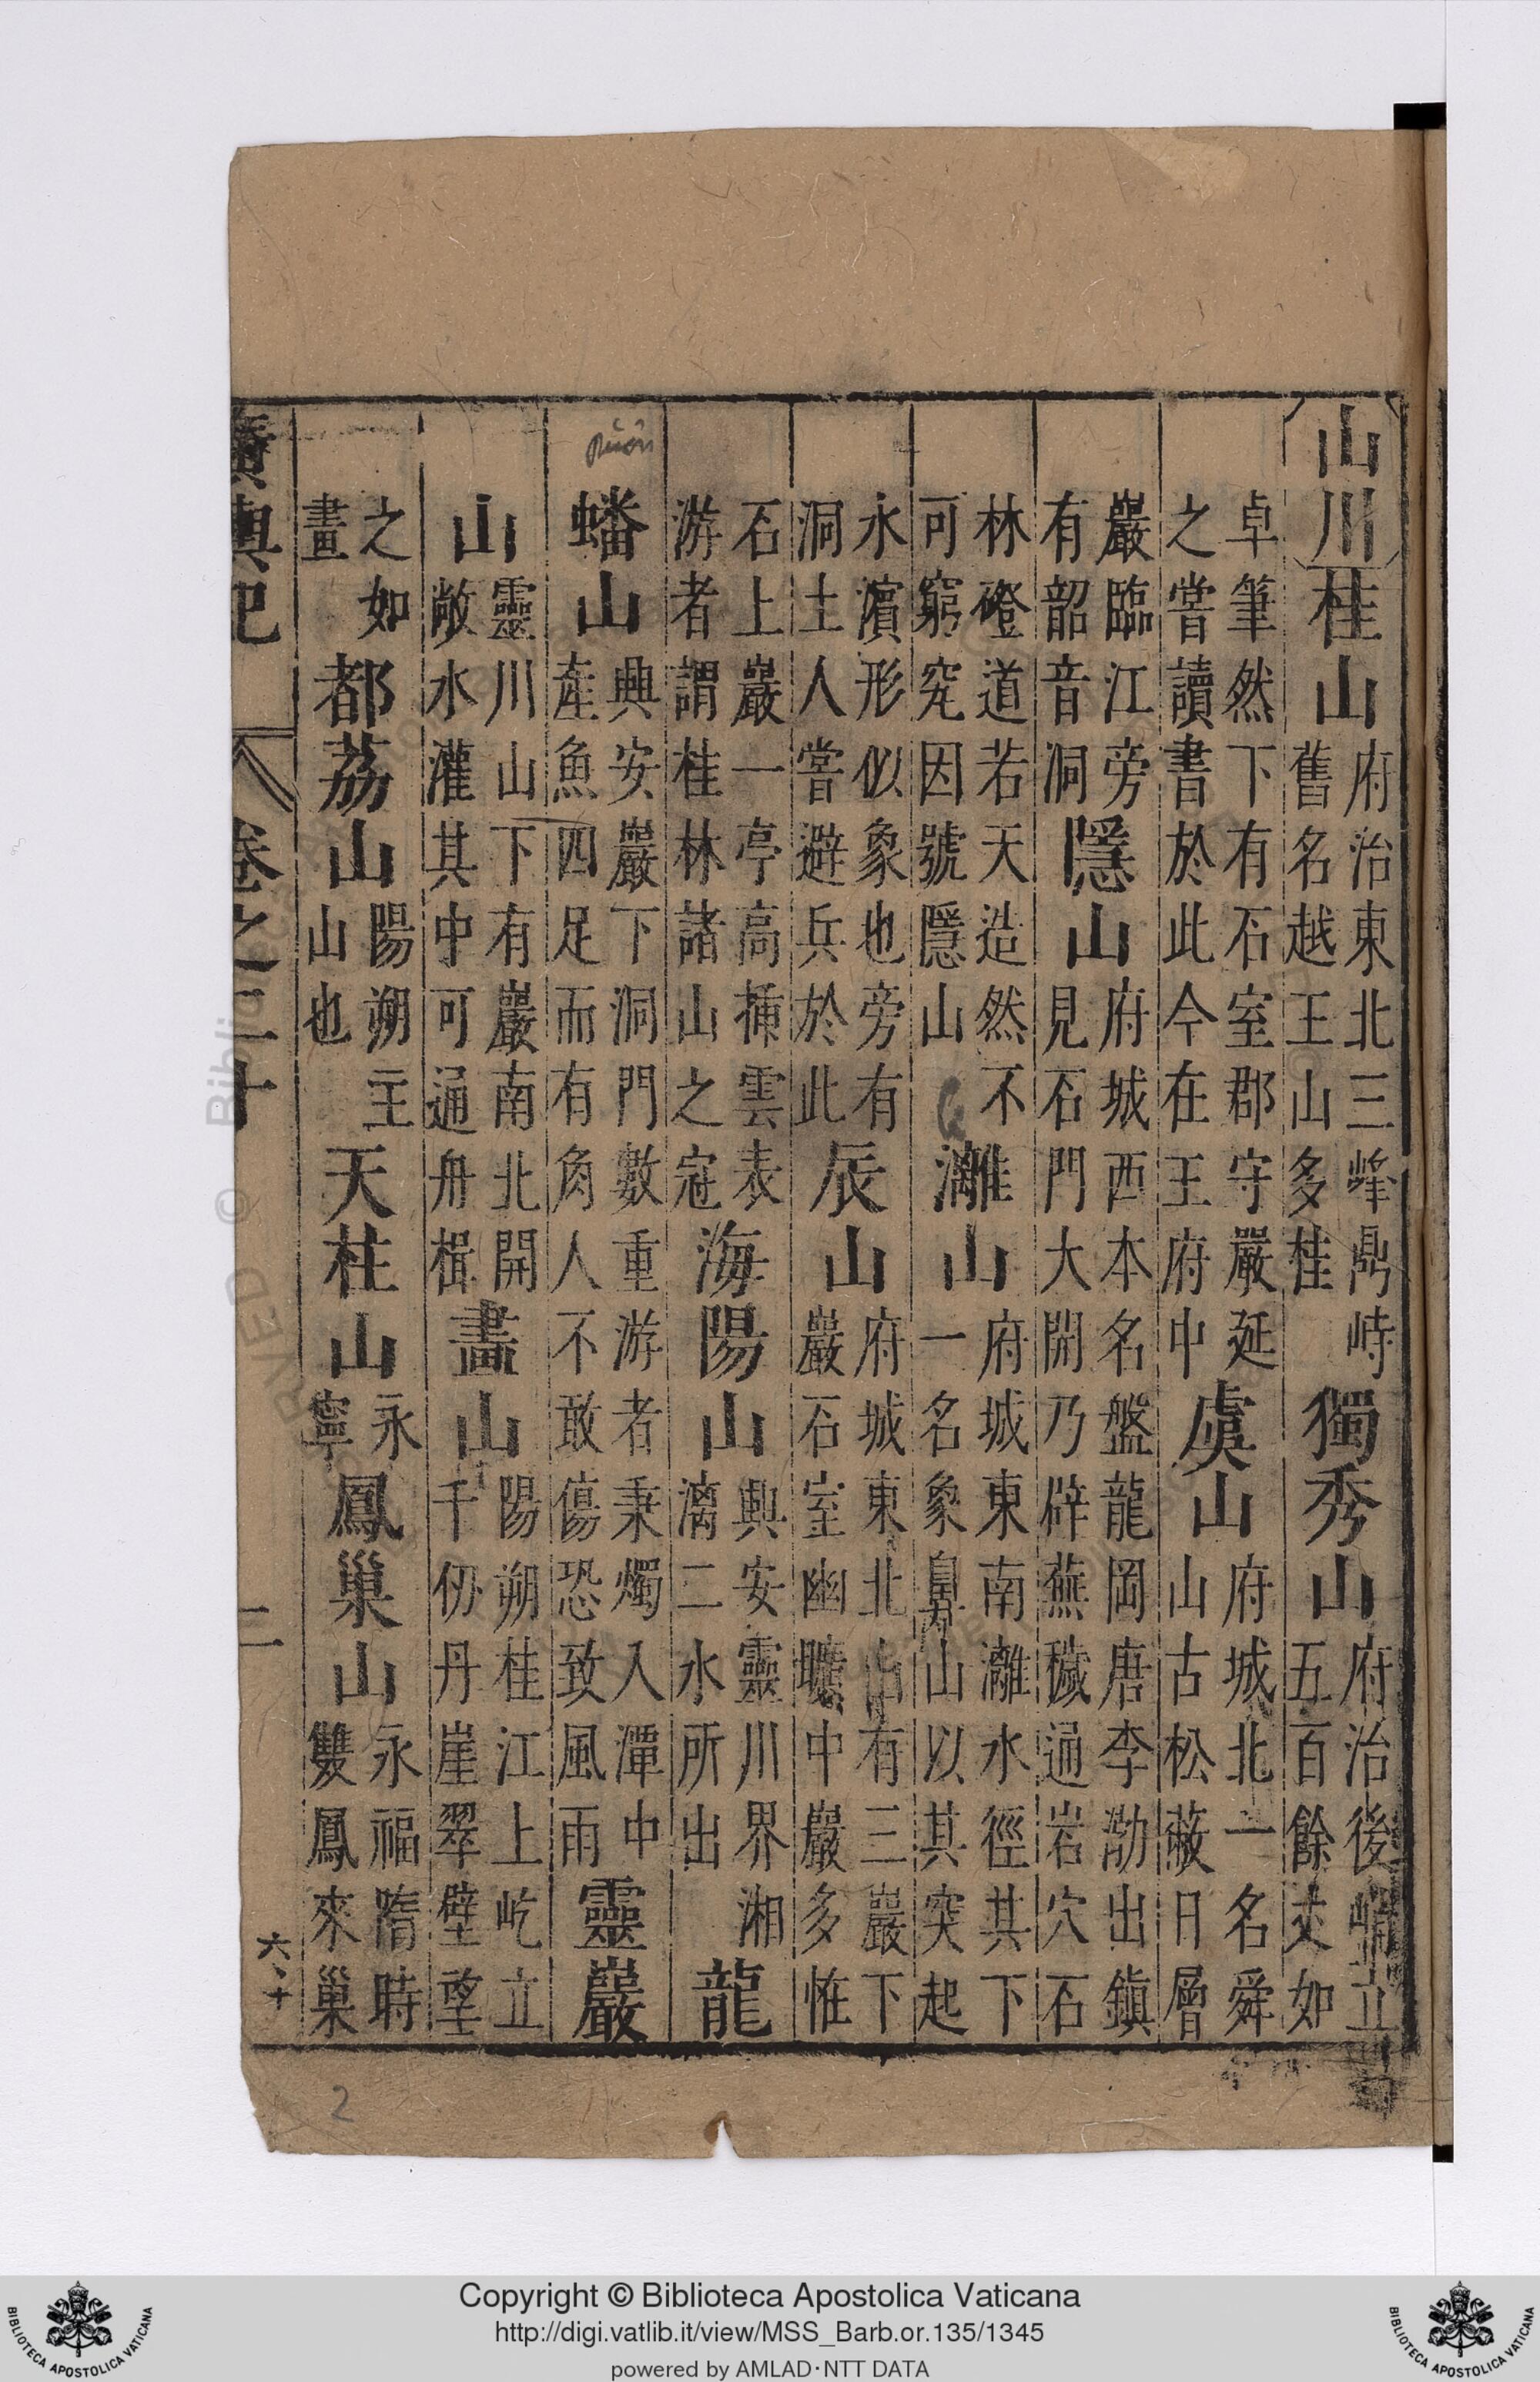 山川桂山府治東北三峰鼎峙舊名越王山多桂獨秀山府治後立五百餘丈如
卓筆然下有石室郡守嚴延之嘗讀書於此今在王府中虞山府城北一名舜山古松蔽日層
巖臨江旁有韶音洞隱山府城西本名盤龍岡唐李渤出鎮見石門大開乃辟蕪穢通岩穴石
林磴道若天造然不可窮究因號隱山灕山府城東南灕水徑其下一名象鼻山以其突起
水濱形似象也旁有洞土人嘗避兵於此辰山府城東北山有三巖下巖石室幽曠中巖多惟
石上巖一亭高插雲表游者謂桂林諸山之冠海陽山興安靈川界湘漓二水所出龍
蟠山興安巖下洞門數重游者秉燭入潭中產魚四足而有角人不敢傷恐致風雨靈巖
山靈川山下有巖南北開敞水灌其中可通舟楫畫山陽朔桂江上屹立千仞丹崖翠壁望
之如畫都荔山陽朔主山也天柱山永寧鳳巢山永福隋時雙鳳來巢
廣輿記 卷之二十 二 六十
2
Copyright © Biblioteca Apostolica Vaticana
http://digi.vatlib.it/view/MSS_Barb.or.135/1345
powered by AMLAD·NTT DATA
BIBLIOTECA APOSTOLICA VATICANA
BIBLIOTECA APOSTOLICA VATICANA